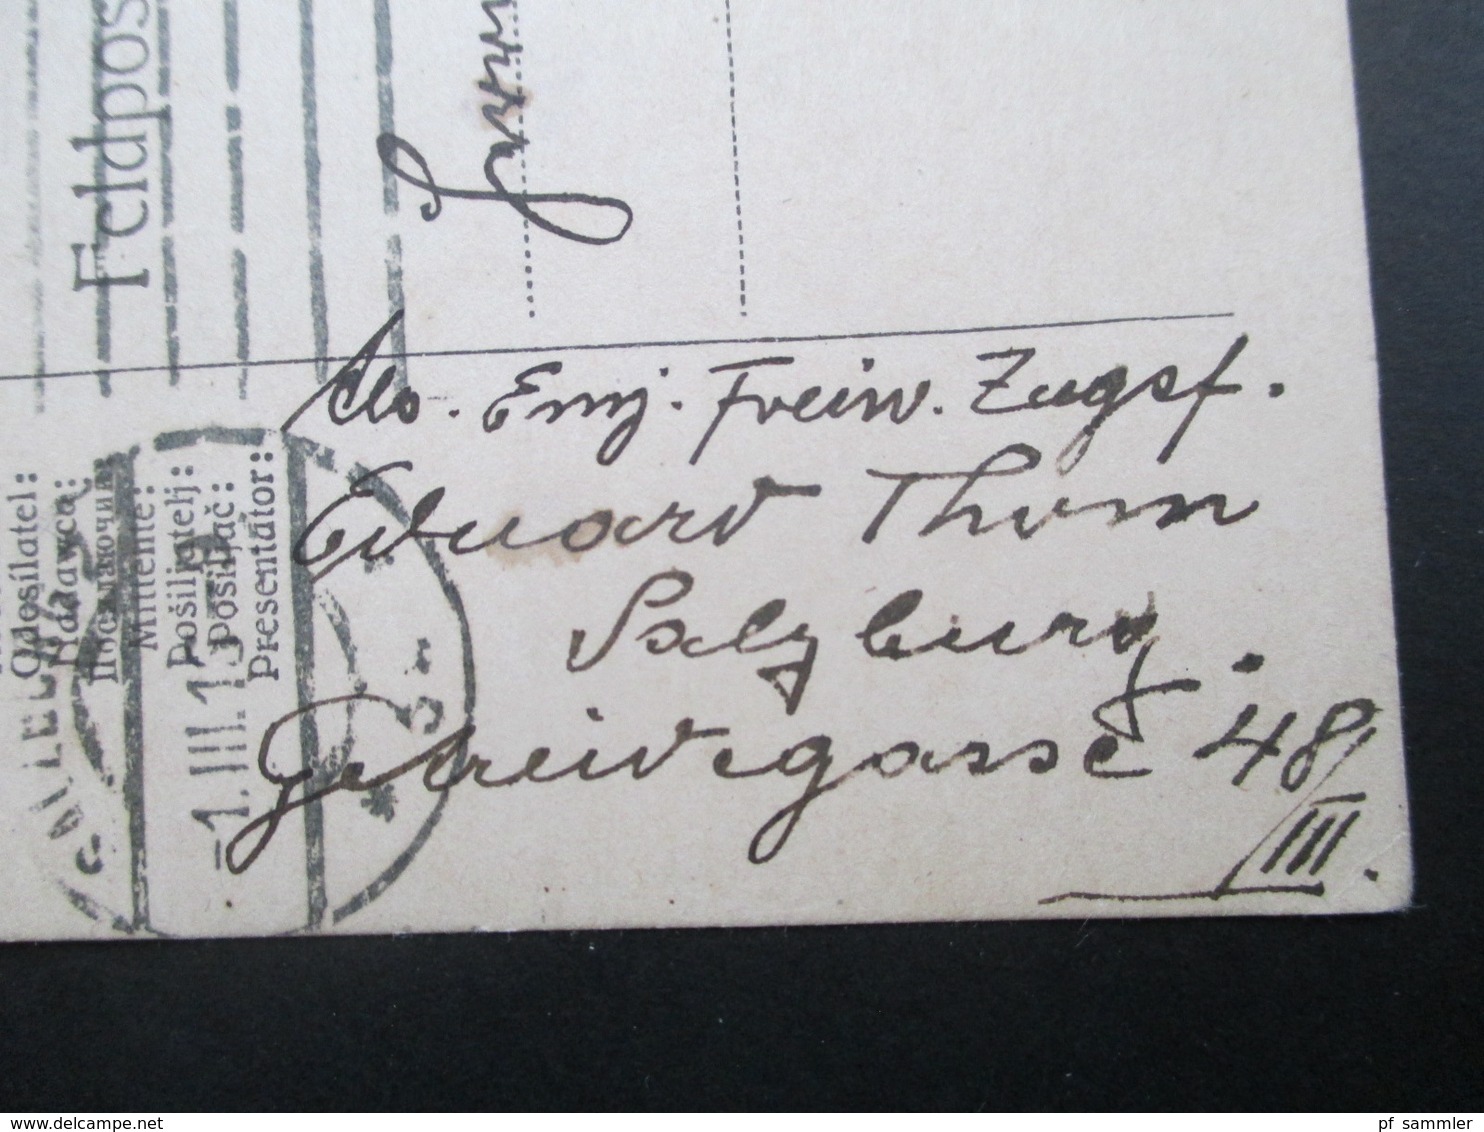 Feldpos
Odosílatel:
Nadawca:
Посилаючий:
Mittente:
Pošiljatelj:
Pošiljač:
Presentator:
-1.III.1
3
Abs. Einj. Freiw. Zugsf.
Eduard Thom
Salzburg.
Getreidegasse 48/
III.
pf sammler